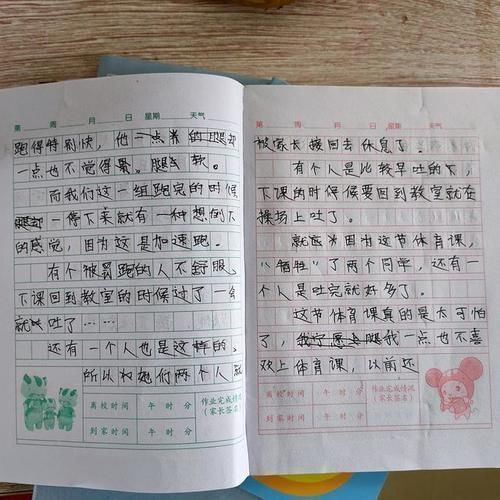 第 周 月 日 星期 天气
跑得特别快，他一点米的腿却
一点也不觉得累。腿去软。
而我们这一组跑完的时候
一停下来就有一种想倒下
的感觉，因为这是加速跑。
有个被罚跑的人不舒服，
下课回到教室的时候过了一会
就吐了……
还有一个人也是这样的。
所以她们两个人就
离校时间 午 时 分 作业完成情况
（家长签名）
到家时间 午 时 分
第 周 月 日 星期 天气
被家长接回去休息了。
有个人是比较早吐的了，
下课的时候候要回到教室就在
操场上吐了。
就因为这节体育课，
“牺牲”了两个同学，还有一
个人是吐完就好多了。
这节体育课真的是太可怕
了，我一点也不喜
欢上体育课，以前还
离校时间 午 时 分 作业完成情况
（家长签名）
到家时间 午 时 分